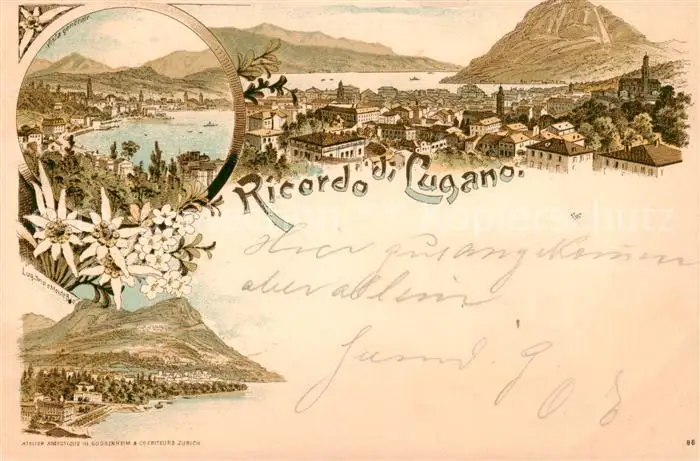 Vista generale
Ricordo di Lugano.
Hier gut angekommen
aber allein
Lugano
ATELIER ARTISTIQUE H. GUGGENHEIM & CO EDITEURS ZURICH
86